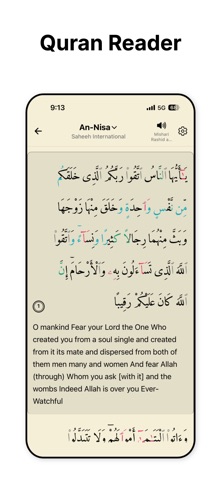 Quran Reader
9:13
5G
An-Nisa
Saheeh International
Mishari
Rashid a...
يَـٰٓأَيُّهَا ٱلنَّاسُ ٱتَّقُوا۟ رَبَّكُمُ ٱلَّذِى خَلَقَكُم
مِّن نَّفْسٍ وَٰحِدَةٍ وَخَلَقَ مِنْهَا زَوْجَهَا
وَبَثَّ مِنْهُمَا رِجَالًا كَثِيرًا وَنِسَآءً وَٱتَّقُوا۟
ٱللَّهَ ٱلَّذِى تَسَآءَلُونَ بِهِۦ وَٱلْأَرْحَامَ إِنَّ
ٱللَّهَ كَانَ عَلَيْكُمْ رَقِيبًا
1
O mankind Fear your Lord the One Who
created you from a soul single and created
from it its mate and dispersed from both of
them men many and women And fear Allah
(through) Whom you ask [with it] and the
wombs Indeed Allah is over you Ever-
Watchful
وَءَاتُوا۟ ٱلْيَتَـٰمَىٰٓ أَمْوَٰلَهُمْ وَلَا تَتَبَدَّلُوا۟